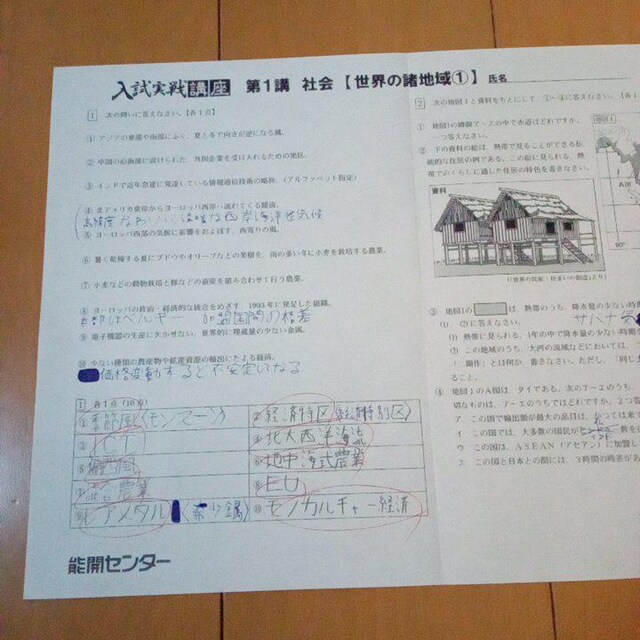 入試実戦講座 第1講 社会【世界の諸地域①】 氏名
1 次の問いに答えなさい。【各1点】
① アジアの東部や南部にふく、夏と冬で向きが逆になる風。
② 中国の沿海部に設けられた、外国企業を受け入れるための地区。
③ インドで近年急速に発達している情報通信技術の略称。(アルファベット指定)
④ 北アメリカ東岸からヨーロッパ西部へ流れてくる暖流。
高緯度なわりには暖な西岸海洋性気候
⑤ ヨーロッパ西部の気候に影響をおよぼす、西寄りの風。
⑥ 暑く乾燥する夏にブドウやオリーブなどの果樹を、雨の多い冬に小麦を栽培する農業。
⑦ 小麦などの穀物栽培と豚などの畜産を組み合わせて行う農業。
⑧ ヨーロッパの政治・経済的な統合をめざす、1993年に発足した組織。
本部はベルギー 加盟国間の格差
⑨ 電子機器の生産に欠かせない、世界的に埋蔵量の少ない金属。
⑩ 少ない種類の農産物や鉱産資源の輸出にたよる経済。
価格変動すると不安定になる
1 各1点(10点)
① 季節風(モンスーン)
② 経済特区(経済特別区)
③ ICT
④ 北大西洋海流
⑤ 偏西風
⑥ 地中海式農業
⑦ 混合農業
⑧ EU
⑨ レアメタル(希少金属)
⑩ モノカルチャー経済
能開センター
2 次の地図1と資料をもとにして、①~④に答えなさい。【各1
① 地図1の緯線ア~エの中で赤道はどれですか。
一つ答えなさい。
② 下の資料の絵は、熱帯で見ることができる伝
統的な住居の例である。この絵に見られる、熱
帯でのくらしに適した住居の特色を書きなさい。
地図1
資料
(『世界の民家・住まいの創造』より)
③ 地図1の は、熱帯のうち、降水量の少ない時期
(1)、(2)に答えなさい。
サバナ気
(1) 熱帯に見られる、1年の中で降水量の少ない時期
(2) この地域のうち、大河の流域などにおいては、
「二期作」とは何か、書きなさい。ただし、「同じ
ること。
④ 地図1のA国は、タイである。次のア~エのうち
切なものは、ア~エのうちではどれですか。2つ答
ア この国で輸出額が最大の品目は、かつては米
イ この国では、大多数の国民がヒンドゥー教を
ウ この国は、ASEAN(アセアン)に加盟し
エ この国と日本との間には、3時間の時差が